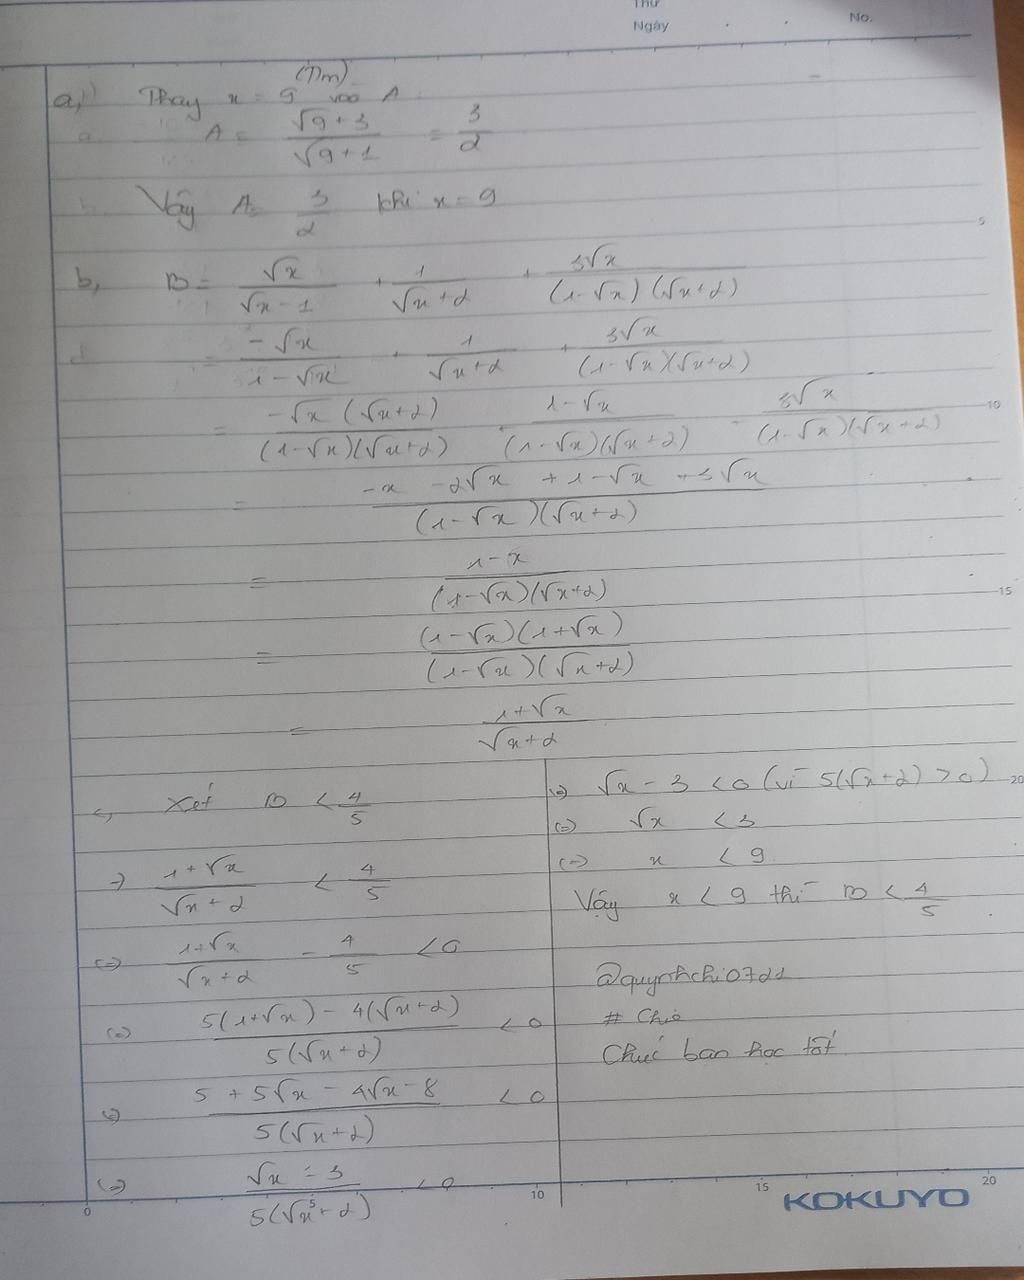 Thứ
Ngày . . No.
a, 1) Thay x = 9 (Tm) vào A
A = \frac{√9 + 3}{√9 + 1} = \frac{3}{2}
Vậy A = \frac{3}{2} khi x = 9
5
b, B = \frac{√x}{√x - 1} + \frac{1}{√x + 2} + \frac{3√x}{(1 - √x)(√x + 2)}
= \frac{-√x}{1 - √x} + \frac{1}{√x + 2} + \frac{3√x}{(1 - √x)(√x + 2)}
= \frac{-√x (√x + 2)}{(1 - √x)(√x + 2)} + \frac{1 - √x}{(1 - √x)(√x + 2)} + \frac{3√x}{(1 - √x)(√x + 2)}
10
= \frac{-x - 2√x + 1 - √x + 3√x}{(1 - √x)(√x + 2)}
= \frac{1 - x}{(1 - √x)(√x + 2)}
15
= \frac{(1 - √x)(1 + √x)}{(1 - √x)(√x + 2)}
= \frac{1 + √x}{√x + 2}
c, Xét B < \frac{4}{5}
=> \frac{1 + √x}{√x + 2} < \frac{4}{5}
(=) \frac{1 + √x}{√x + 2} - \frac{4}{5} < 0
(=) \frac{5(1 + √x) - 4(√x + 2)}{5(√x + 2)} < 0
(=) \frac{5 + 5√x - 4√x - 8}{5(√x + 2)} < 0
(=) \frac{√x - 3}{5(√x + 2)} < 0
(=) √x - 3 < 0 (vì 5(√x + 2) > 0)
20
(=) √x < 3
(=) x < 9
Vậy x < 9 thì B < \frac{4}{5}
@quynhchi0721
# Chio
Chúc bạn học tốt
0 5 10 15 20
KOKUYO